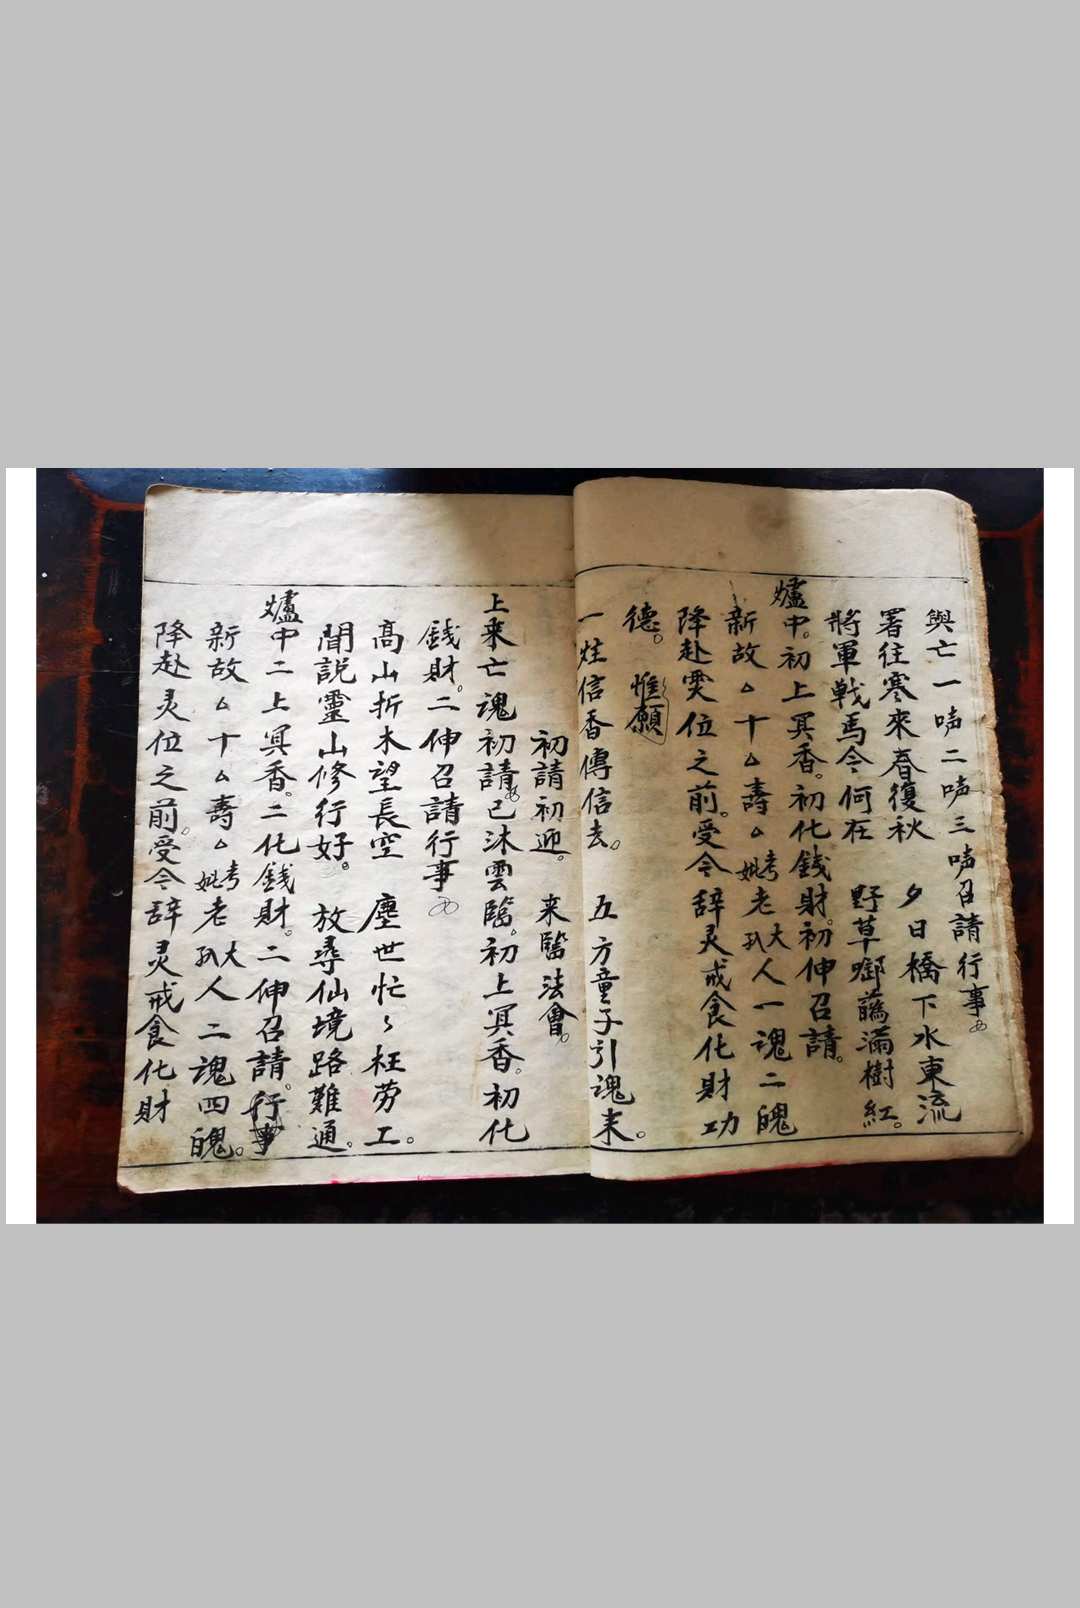 與亡一啨二啨三啨召請行事
署往寒來春復秋　夕日橋下水東流
將軍戰馬今何在　野草啣蘤滿樹紅。
爐中。初上冥香。初化錢財。初伸召請。
新故△十△壽△考妣老大孔人一魂二魄
降赴灵位之前。受今辞灵戒食化財功
德。惟願
一炷信香傳信去。五方童子引魂来。
初請初迎。来臨法會。
上来亡魂初請已沐雲臨。初上冥香。初化
錢財。二伸召請行事
高山折木望長空　塵世忙〻枉劳工。
聞説靈山修行好。放尋仙境路難通。
爐中二上冥香。二化錢財。二伸召請。行事
新故△十△壽△考妣老大孔人二魂四魄。
降赴灵位之前。受今辞灵戒食化財